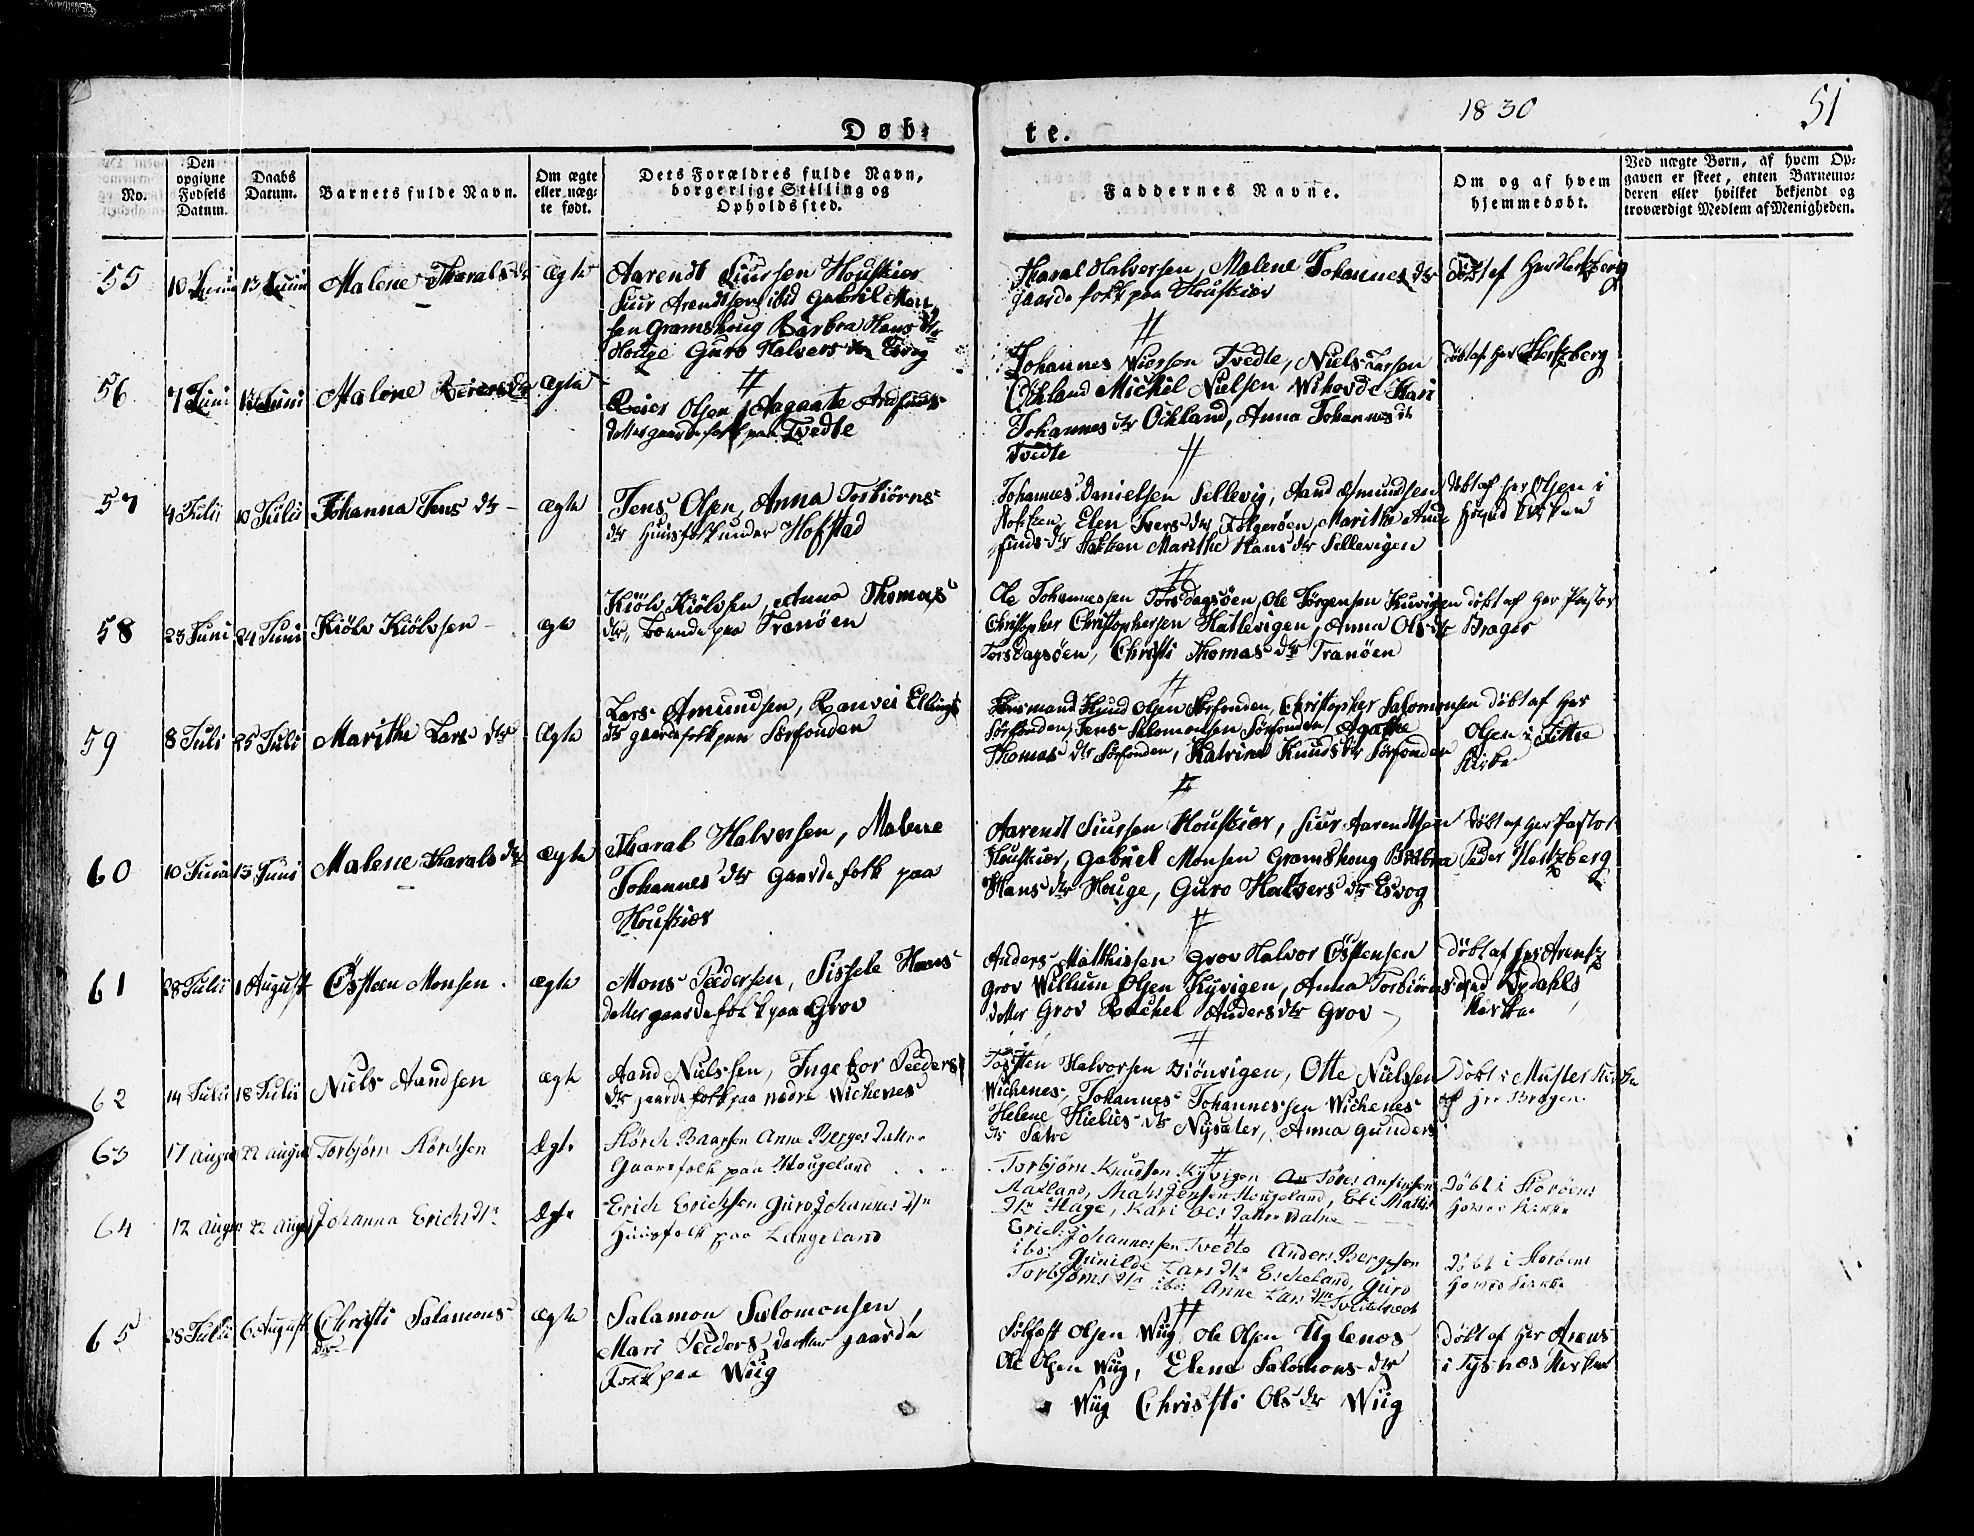 1830
51
Døb-
te.
No.
Den opgivne Fødsels Datum.
Daabs Datum.
Barnets fulde Navn.
Om ægte eller uæg-
te født.
Dets Forældres fulde Navn,
borgerlige Stilling og
Opholdssted.
Faddernes Navne.
Om og af hvem
hjemmedøbt.
Ved uægte Børn, af hvem Op-
gaven er skeet, enten Barnemo-
deren eller hvilket bekjendt og
troværdigt Medlem af Menigheden.
55
10 Junii
13 Junii
Malene Tharals dr
Ægte
Aarendt Siursen Houskier
Siur Arendtsen ibid Gabriel Mon
sen Gramshoug Barbra Hans dtr
Houge Guro Halvers dtr Esvog
Tharal Halversen, Malene Johannes dtr
gaarde folk paa Houskier
Døbt af Her Hertzberg
56
7 Juni
13 Juni
Malene Reiers dtr
Ægte
Reier Olsen, Aagaate Andfinds
dotter gaarde folk paa Tvedte
Johannes Tvedte, Niels Larsen
Ockland Mickil Nielsen Wikovde Kari
Johannes dtr Ockland, Anna Johannes dtr
Tvedte
Døbt af Her Hertzberg
57
4 Julii
10 Julii
Johanna Jens dtr
Ægte
Jens Olsen, Anna Torbiörns
dtr Huusfolk under Hofstad
Johannes Danielsen Sellevig, Aand Asmundsen
Elen Ivers dtr Folgerøen, Marithe And
finds dtr Stokken Marithe Hans dtr Sellevigen
Døbt af Her Olsen i
58
23 Juni
24 Juni
Kiölv Kiölvsen
Kiölv Kiölvsen, Anna Thomas
dtr, Boende paa Tranöen
Ole Johannessen Torsdagsöen, Ole Jörgensen Kuvigen
Christopher Christophersen Hatlevigen, Anna Ols dtr
Torsdagsöen, Christi Thomas dtr Tranöen
döbt af Her Pastor
Brager
59
8 Juli
25 Juli
Marithe Lars dtr
Ægte
Lars Amundsen, Ranvei Ellings
dtr gaardefolk paa Sörfonden
Lensmand Knud Olsen Sörfonden, Christopher Salomonsen
Sörfonden, Jens Salomonsen Sörfonden, Agathe
Thomas dtr Sörfonden, Katrine Knuds dtr Sörfonden
döbt af Her
Olsen i
Kirke
60
10 Junii
13 Juni
Malene Tharals dtr
Ægte
Tharal Halversen, Malene
Johannes dtr gaarde folk paa
Houskier
Aarendt Siursen Houskier, Siur Aarendtsen
Houskier, Gabriel Monsen Gramshoug Barbra
Hans dtr Houge, Guro Halvers dtr Esvog
Døbt af Her Pastor
Peder Hertzberg
61
28 Julii
1 August
Össteen Monsen
Ægte
Mons Pedersen, Sissele Hans
dotter gaardefolk paa Grov
Anders Matthissen Grov Halvor Östensen
Grov Willum Olsen Kyvigen, Anna Torbiörns
dotter Grov Rachel Anders dtr Grov
döbt af Her Arentz
ved Opdahls
Kirke
62
14 Julii
18 Julii
Niels Aandsen
Ægte
Aand Nielssen, Ingebor Peders
dtr gaardefolk paa nedre Wichenes
Halvorsen Otte Nielssen
Wichenes, Johannes Johannessen Wichenes
Helene dtr Nysater, Anna Gunders
dtr Sætre
Döbt i Muster Kirke
af Brager
63
17 Augu
22 Augu
Torbjørn Størchsen
Ægte
Størch Baarsen Anne Berges Datter
Gaardfolk paa Hougeland
Torbjørn Knudsen Kyvigen Tøres Anfinsen
Mats Jensen Hougeland, Mattis
dtr Hage, Kari Ols Datter
Døbt i Storøens
Hoved Kirke
64
12 Augu
22 Augu
Johanna Erichs dtr
Ægte
Erich Erichsen Guro Johannes dtr
Huusfolk paa Langeland
Erich Johannessen Tvedte Anders Bergeson
ibd: Gunilde Lars dtr Eskeland, Guro
Torbjørns dtr ibd: Anne Lars dtr
Døbt i Storøens
Hoved Kirke
65
28 Julii
6 August
Christi Salamons
dtr
Ægte
Salamon Salomonsen,
Mari Peders datter gaarde
Folk paa Wiig
Sölfest Olsen Wiig, Ole Olsen Uglenes
Ole Olsen Wiig, Elena Salomons dtr
Wiig Christi Ols dtr Wiig
döbt af Her Arens
i Tysnæs Kirke